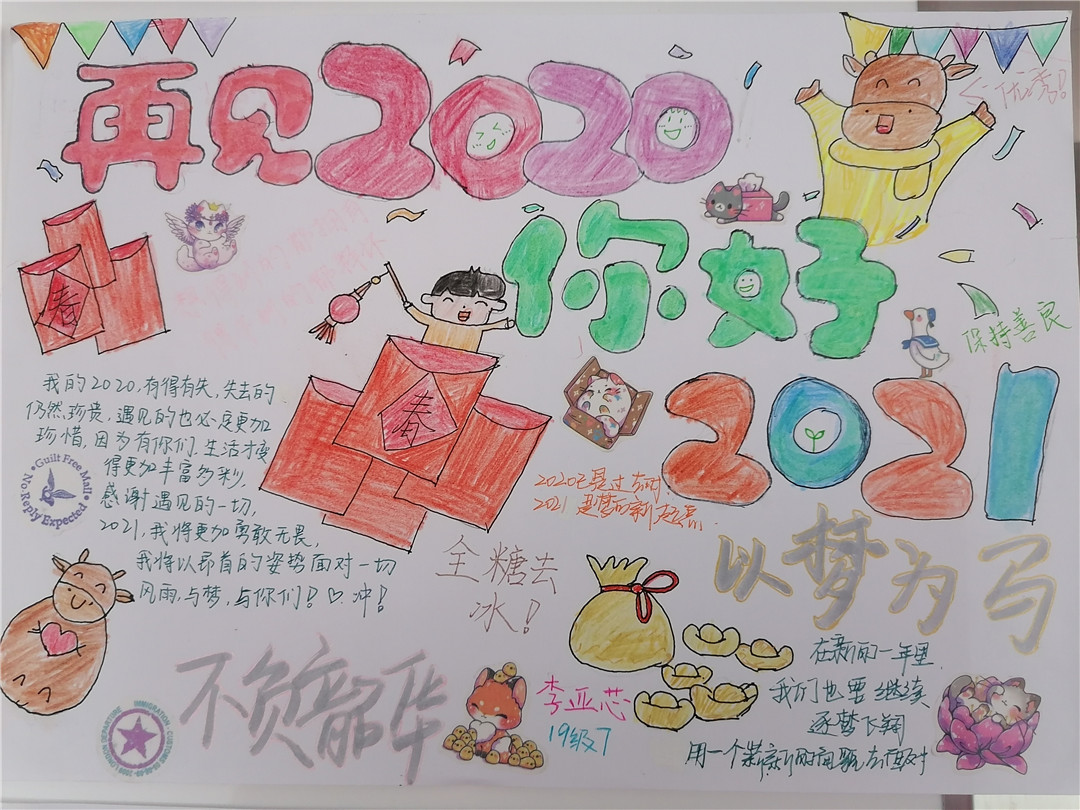 再见2020
优秀!
你好
春
保持善良
春
2021
我的2020,有得有失,失去的
仍然珍贵,遇见的也必定更加
珍惜,因为有你们,生活才变
得更加丰富多彩,
感谢遇见的一切,
2021,我将更加勇敢无畏,
我将以昂首的姿势面对一切
风雨,与梦,与你们!♡冲!
• Guilt Free Mail •
No Reply Expected
2020已是过去时,
2021是梦的新起点.
全糖去
冰!
以梦为马
不负韶华
李亚芯
19级7
在新的一年里,
我们也要继续
逐梦飞翔
用一个崭新的面貌去面对
IMMIGRATION